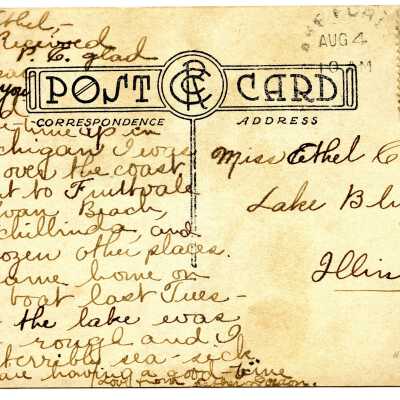 Ethel,-
Received
P. C. glad
POST CARD
CORRESPONDENCE
ADDRESS
AUG 4
AM
time up in
chigan I was
over the coast
t to Fruitvale
wan Beach,
chillinda, and
ozen other places.
ame home on
boat last Tues-
the lake was
rough and I
terrible sea-sick.
are having a good time
Love from Gordon.
Miss Ethel C
Lake Blu
Illin